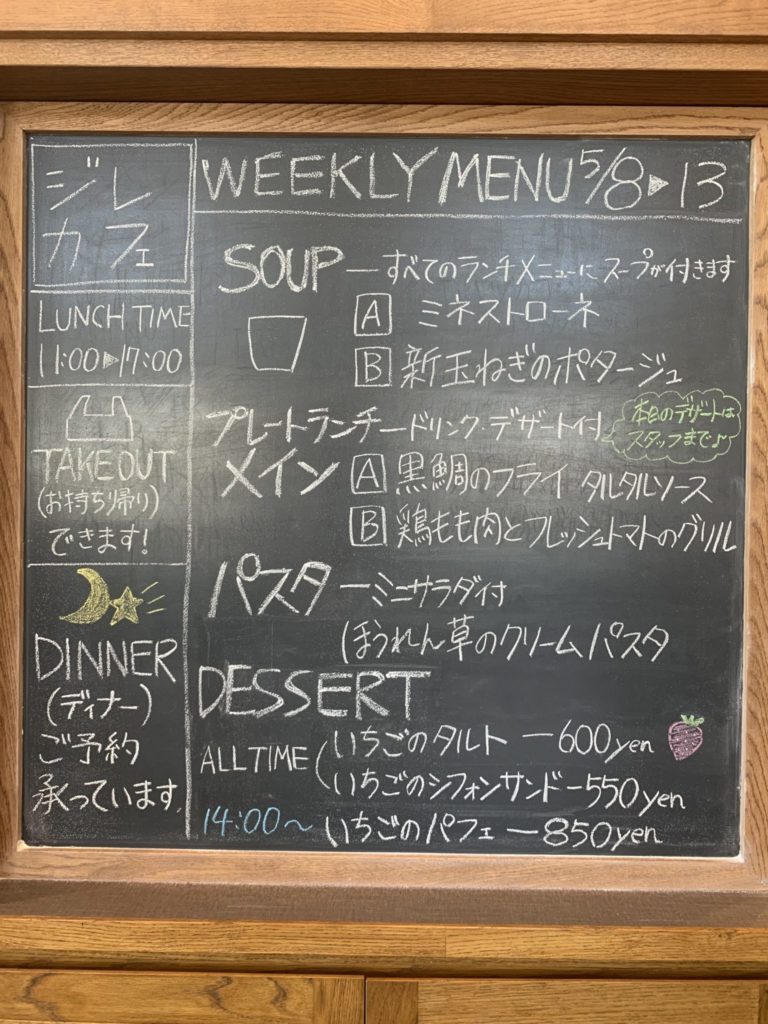 ジレ
カフェ
LUNCH TIME
11:00▶17:00
TAKEOUT
(お持ち帰り)
できます!
DINNER
(ディナー)
ご予約
承っています
WEEKLY MENU 5/8▶13
SOUP ーすべてのランチメニューにスープが付きます
A ミネストローネ
B 新玉ねぎのポタージュ
プレートランチードリンク・デザート付
本日のデザートは
スタッフまで♪
メイン A 黒鯛のフライ タルタルソース
B 鶏もも肉とフレッシュトマトのグリル
パスタ ーミニサラダ付
ほうれん草のクリームパスタ
DESSERT
ALL TIME いちごのタルト ー600yen
いちごのシフォンサンドー550yen
14:00〜 いちごのパフェ ー850yen